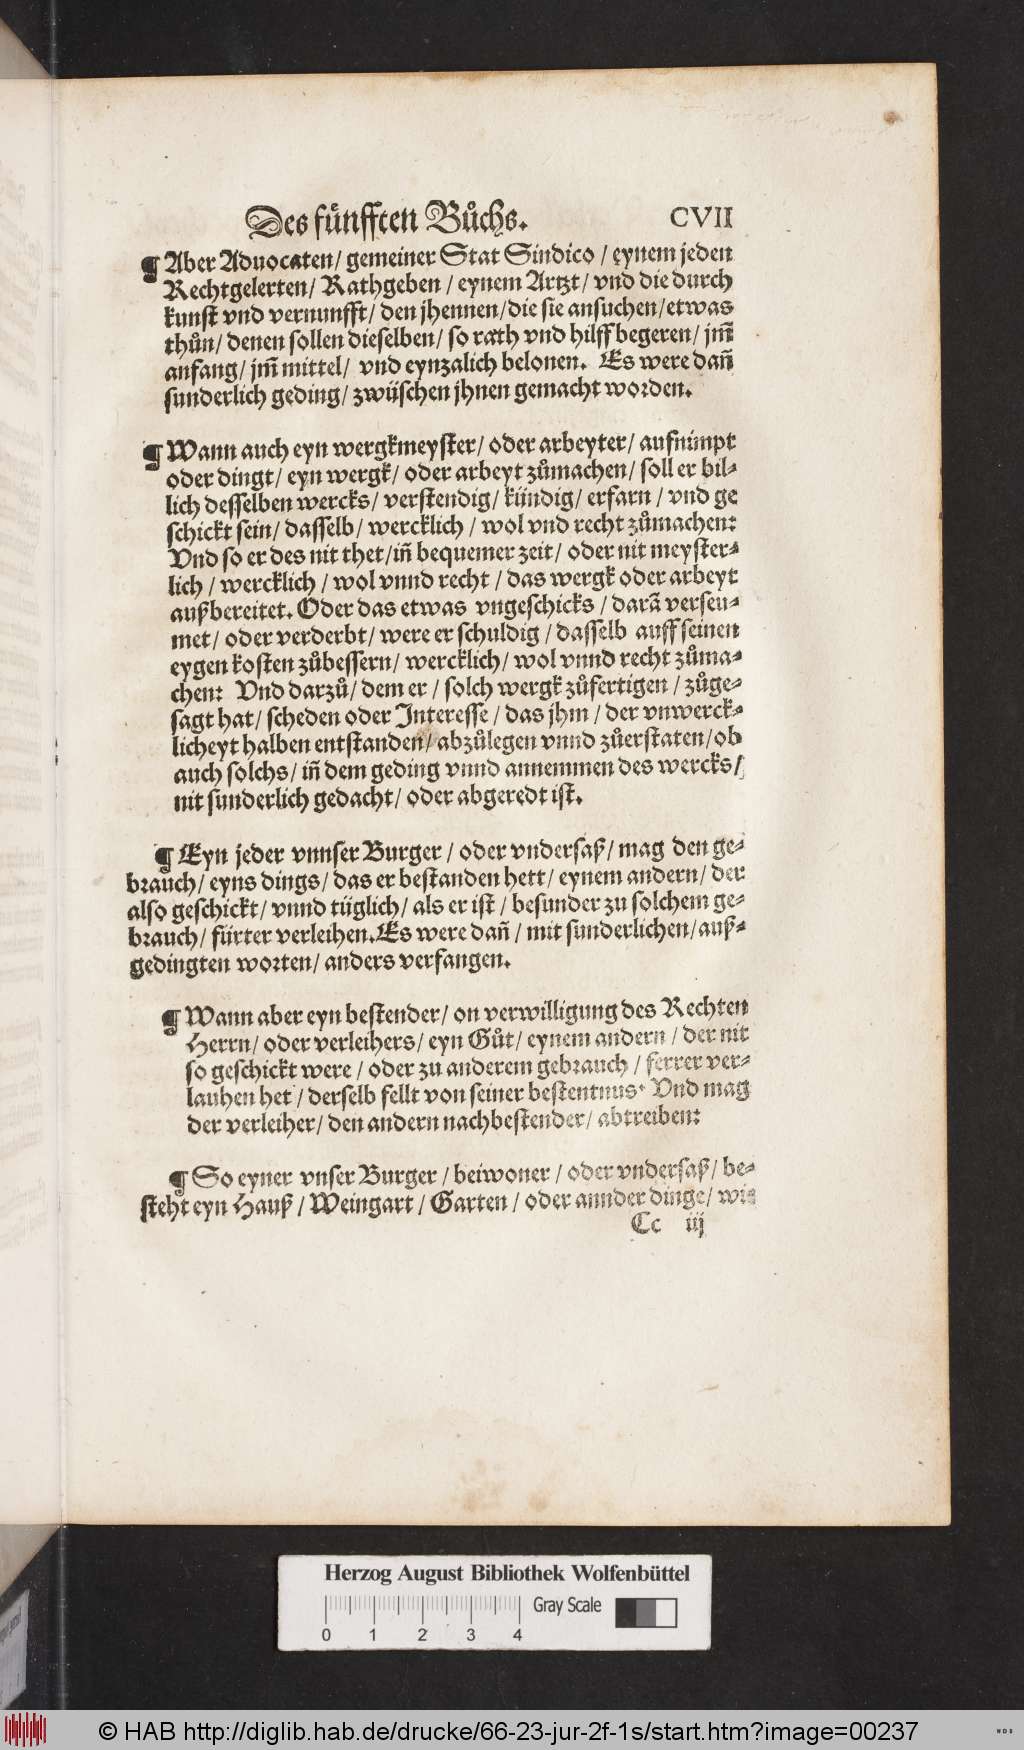 Des fünfften Bůchs. CVII
¶ Aber Aduocaten / gemeiner Stat Sindico / eynem jeden
Rechtgelerten / Rathgeben / eynem Artzt / vnd die durch
kunst vnd vernunfft / den jhennen / die sie ansuchen / etwas
thůn / denen sollen dieselben / so rath vnd hilff begeren / jm̃
anfang / jm̃ mittel / vnd eynzalich belonen. Es were dañ
sunderlich geding / zwüschen jhnen gemacht worden.
¶ Wann auch eyn wergkmeyster / oder arbeyter / aufnimpt
oder dingt / eyn wergk / oder arbeyt zůmachen / soll er bil⸗
lich desselben wercks / verstendig / kündig / erfarn / vnd ge
schickt sein / dasselb / wercklich / wol vnd recht zůmachen:
Vnd so er des nit thet / iñ bequemer zeit / oder nit meyster⸗
lich / wercklich / wol vnnd recht / das wergk oder arbeyt
außbereitet. Oder das etwas vngeschicks / darã verseu⸗
met / oder verderbt / were er schuldig / dasselb auff seinen
eygen kosten zůbessern / wercklich / wol vnnd recht zůma⸗
chen: Vnd darzů / dem er / solch wergk zůfertigen / zůge⸗
sagt hat / scheden oder Interesse / das jhm / der vnwerck⸗
licheyt halben entstanden / abzůlegen vnnd zůerstaten / ob
auch solchs / iñ dem geding vnnd annemmen des wercks /
nit sunderlich gedacht / oder abgeredt ist.
¶ Eyn jeder vnnser Burger / oder vndersaß / mag den ge⸗
brauch / eyns dings / das er bestanden hett / eynem andern / der
also geschickt / vnnd tüglich / als er ist / besunder zu solchem ge⸗
brauch / fürter verleihen. Es were dañ / mit sunderlichen / auß⸗
gedingten worten / anders verfangen.
¶ Wann aber eyn bestender / on verwilligung des Rechten
Herrn / oder verleihers / eyn Gůt / eynem andern / der nit
so geschickt were / oder zu anderem gebrauch / ferrer ver⸗
lauhen het / derselb fellt von seiner bestentnus. Vnd mag
der verleiher / den andern nachbestender / abtreiben:
¶ So eyner vnser Burger / beiwoner / oder vndersaß / be⸗
steht eyn Hauß / Weingart / Garten / oder annder dinge / wie
Cc iij
Herzog August Bibliothek Wolfenbüttel
Gray Scale
0 1 2 3 4
© HAB http://diglib.hab.de/drucke/66-23-jur-2f-1s/start.htm?image=00237